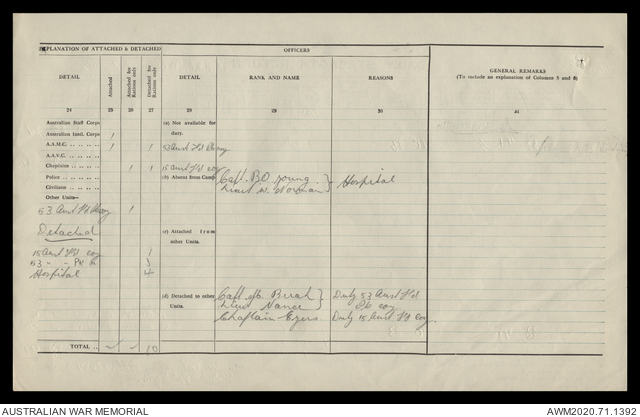 EXPLANATION OF ATTACHED & DETACHED
OFFICERS
DETAIL
Attached
Attached for Rations only
Detached for Rations only
DETAIL
RANK AND NAME
REASONS
GENERAL REMARKS
(To include an explanation of Columns 5 and 8)
24 25 26 27 28 29 30 31
Australian Staff Corps
(a) Not available for duty.
Australian Instl. Corps 1
A.A.M.C. 1 1 53 Aust Fd Coy
A.A.V.C.
Chaplains 1 1 15 Aust Fd Coy
Police
(b) Absent from Camp
Capt. B.O. Young
Lieut W. Norman
Hospital
Civilians
Other Units—
53 Aust Fd Coy 1
Detached
(c) Attached from other Units.
15 Aust Fd Coy 1
53 " " Pk
Hospital 4
(d) Detached to other Units.
Capt
Lieut Vance
Duty 53 Aust Fd Pk Coy
Chaplain Eyers
Duty 15 Aust Fd Coy
TOTAL 10
AUSTRALIAN WAR MEMORIAL
AWM2020.71.1392